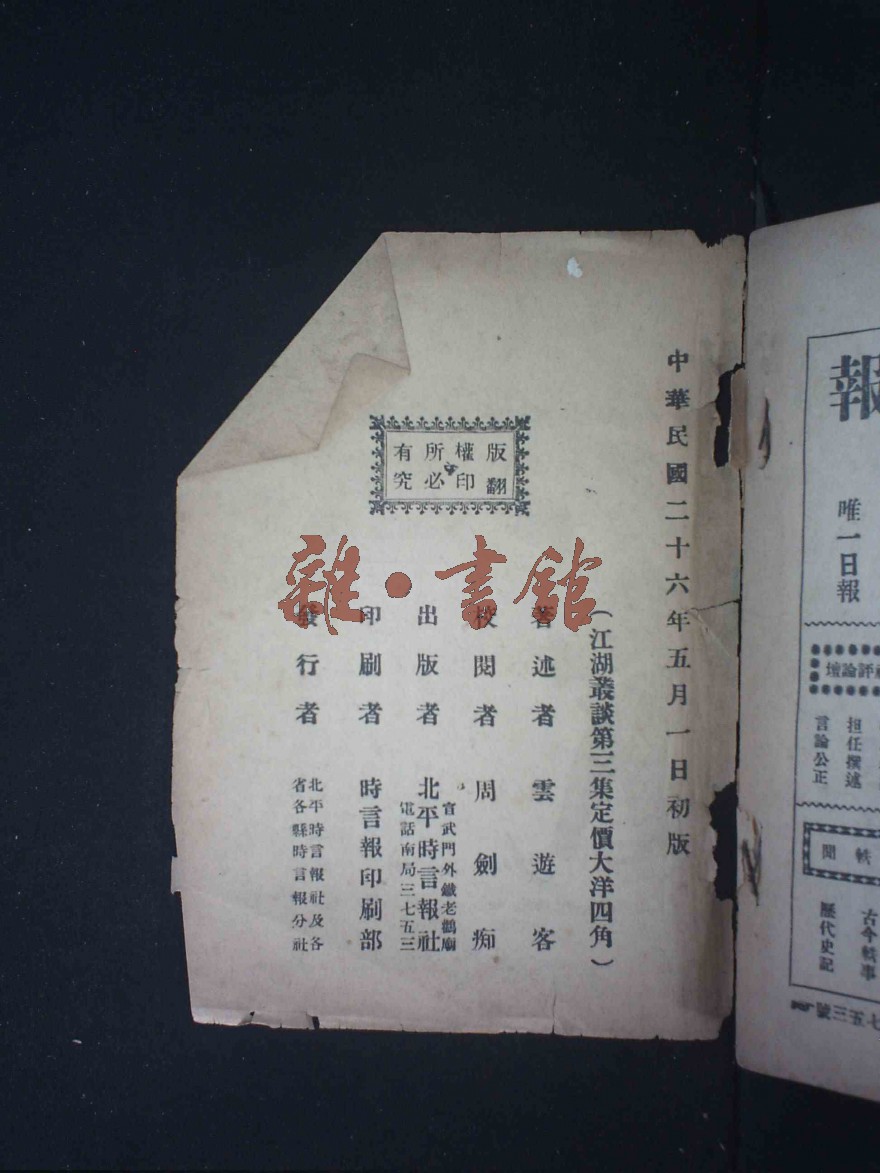 報
唯一日報
評論壇
担任撰述
言論公正
軼聞
古今軼事
歷代史記
七五三號
中華民國二十六年五月一日初版
（江湖叢談第三集定價大洋四角）
著述者 雲遊客
校閱者 周劍痴
出版者 北平時言報社
宣武門外鐵老鸛廟
電話南局三七五三
印刷者 時言報印刷部
發行者 北平時言報社及各
省各縣時言報分社
版權所有
翻印必究
雜·書館